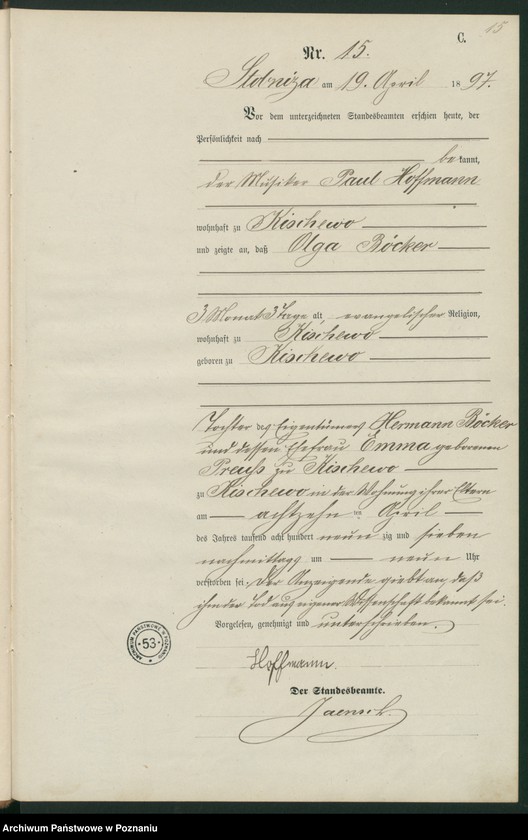 15
C.
Nr. 15.
am 19. April 1897.
Vor dem unterzeichneten Standesbeamten erschien heute, der
Persönlichkeit nach
bekannt,
der Musiker Paul Hoffmann
wohnhaft zu Kischewo
und zeigte an, daß Olga Böcker
3 Monat 3 Tage alt, evangelischer Religion,
wohnhaft zu Kischewo
geboren zu Kischewo
Tochter des Eigentümers Hermann Böcker
und dessen Ehefrau Emma geborenen
Preuß zu Kischewo
zu Kischewo in der Wohnung ihrer Eltern
am achtzehnten April
des Jahres tausend acht hundert neunzig und sieben
nachmittags um neun Uhr
verstorben sei. Der Anzeigende giebt an, daß
ihm der Tod aus eigener Wissenschaft bekannt sei.
Vorgelesen, genehmigt und unterschrieben.
Hoffmann.
Der Standesbeamte.
Jaensch.
ARCHIWUM PAŃSTWOWE W POZNANIU
53
Archiwum Państwowe w Poznaniu